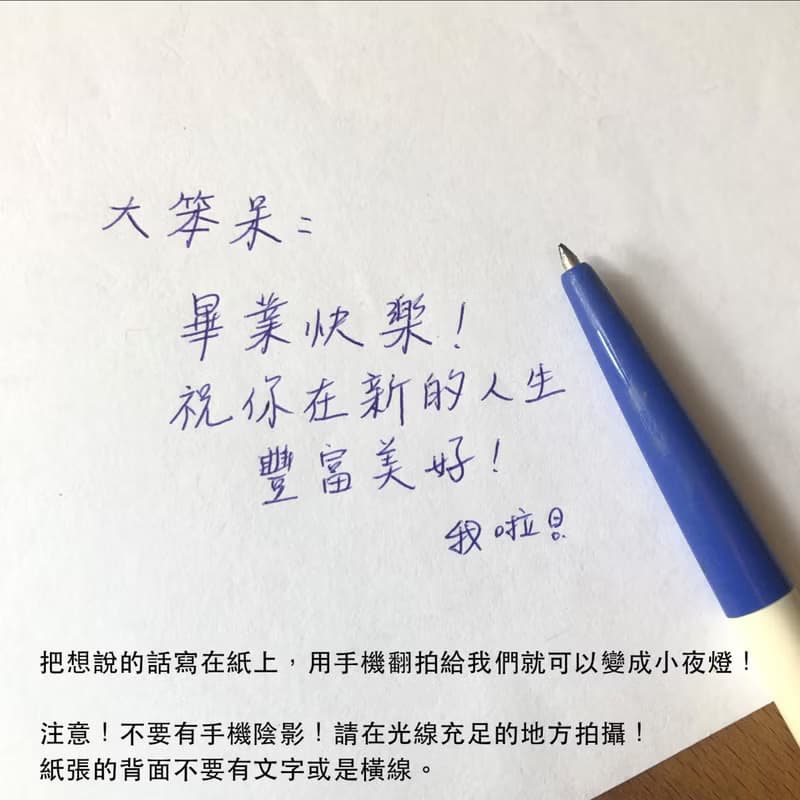 大笨呆:
畢業快樂!
祝你在新的人生
豐富美好!
我啦!
把想說的話寫在紙上，用手機翻拍給我們就可以變成小夜燈！
注意！不要有手機陰影！請在光線充足的地方拍攝！
紙張的背面不要有文字或是橫線。